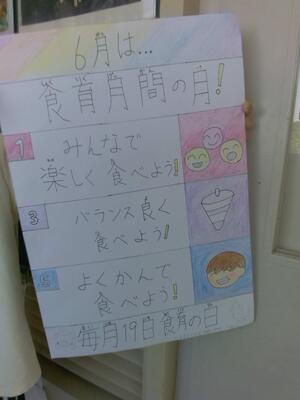 6月は...
食育月間の月!
1 みんなで
楽しく食べよう!
3 バランス良く
食べよう!
5 よくかんで
食べよう!
毎月19日食育の日